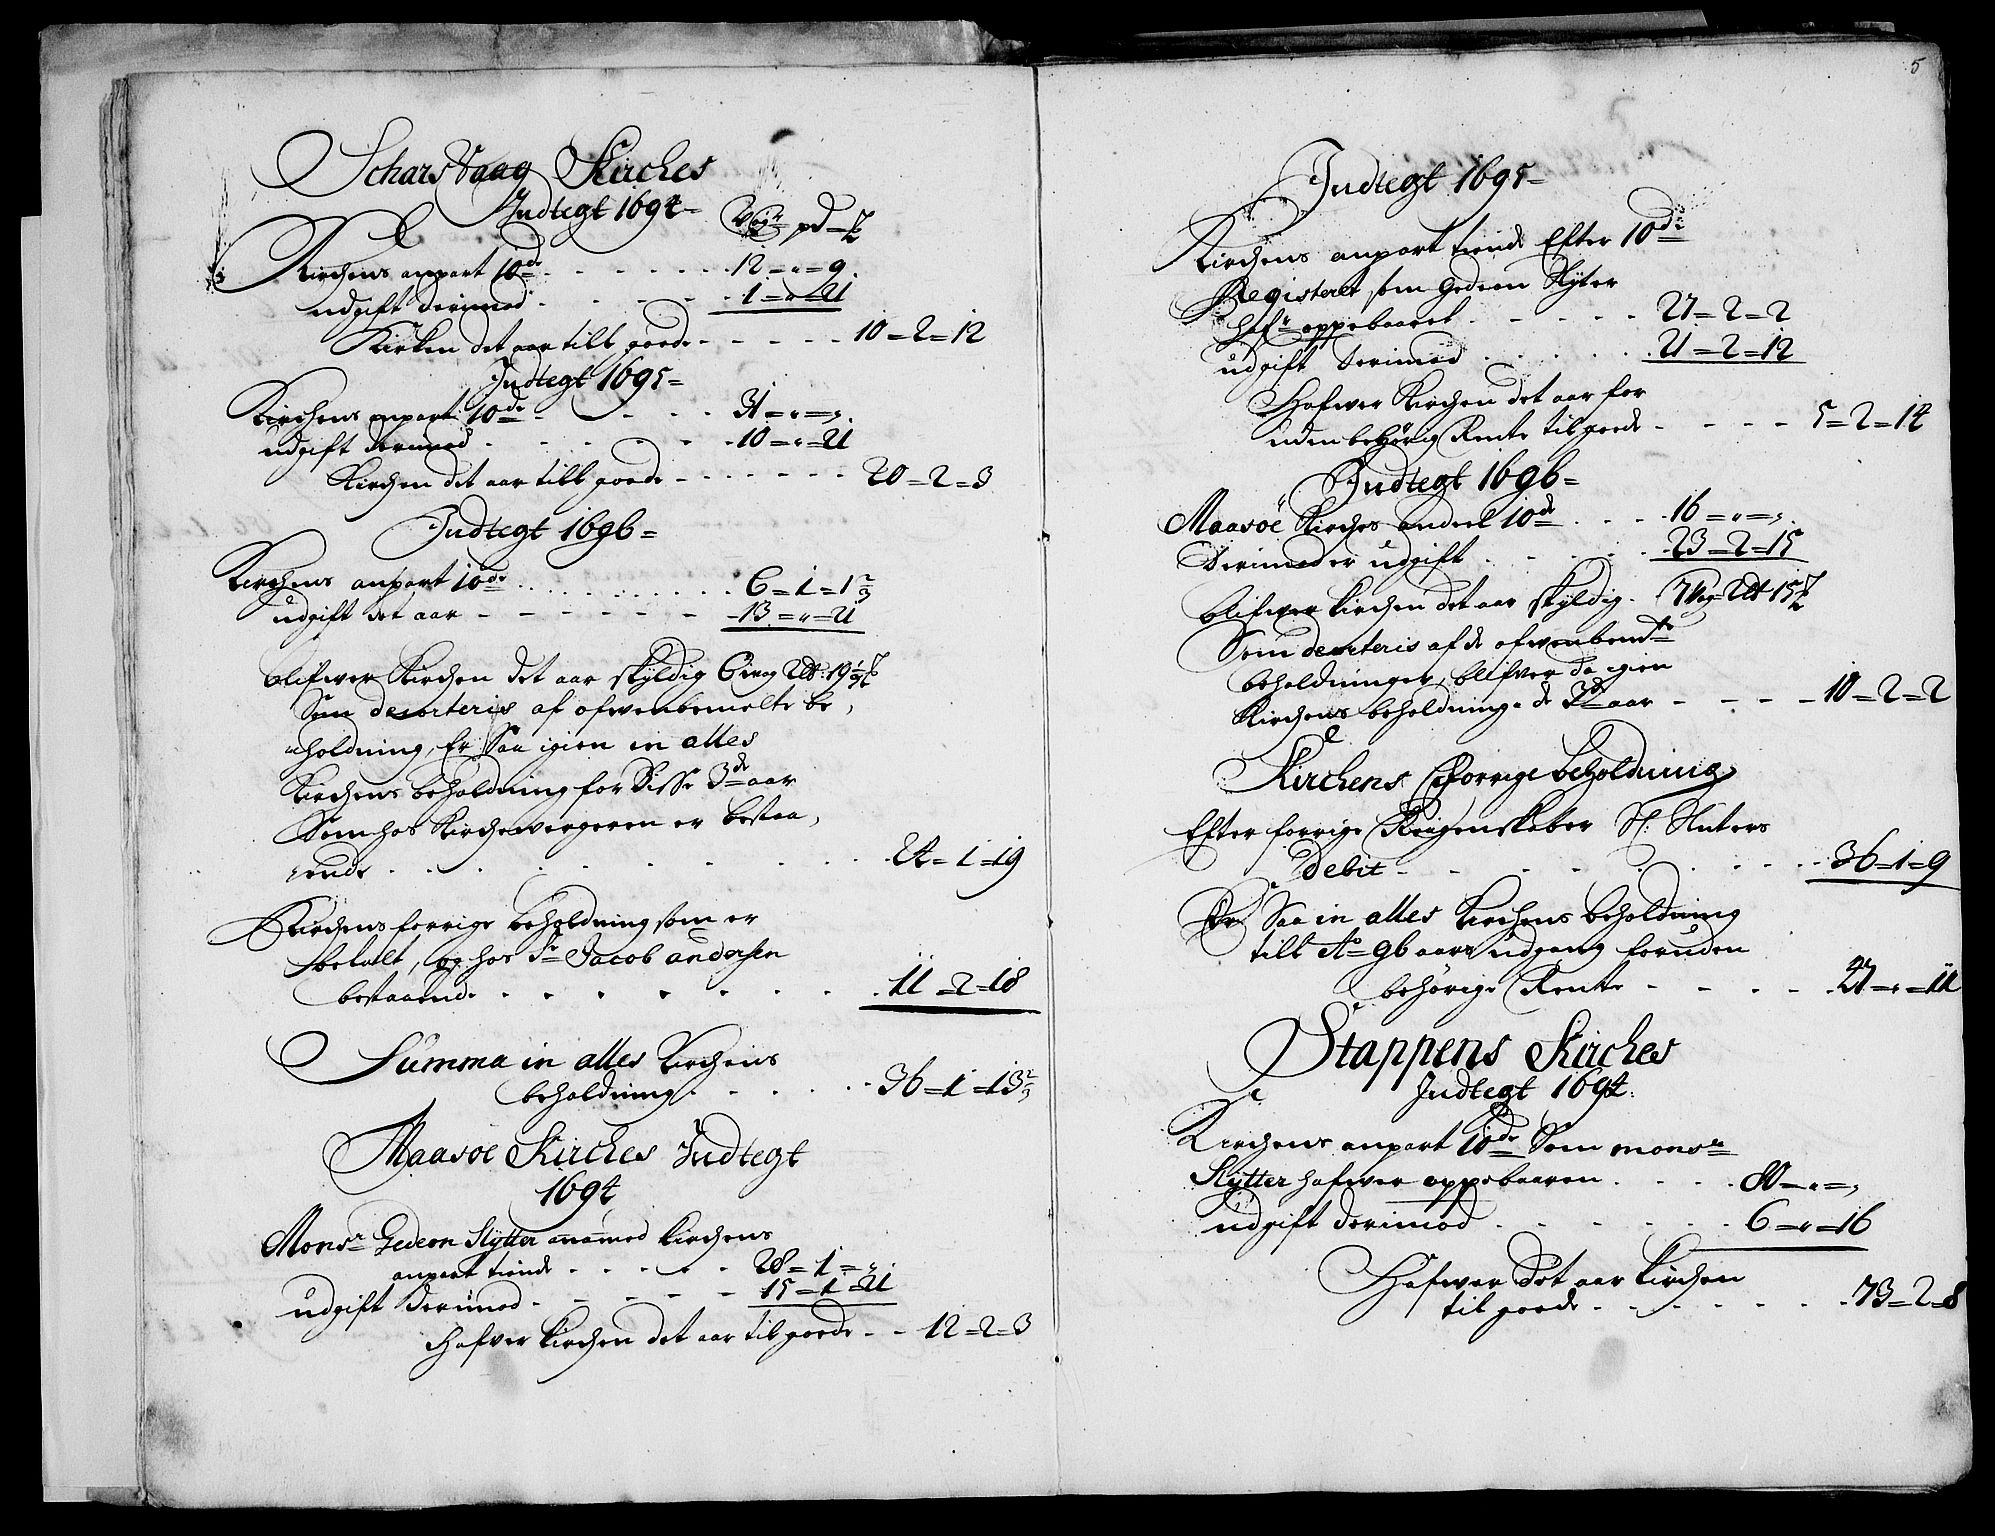 Schars Vaag Kirches
Indtegt 1694=
Wog pd ℔
Kirchens anpart 10de - - - - - 12="=9.
udgift derimod - - - - 1="=21
Kirken det aar till goede - - - - - 10=2=12
Indtegt 1695=
Kirchens anpart 10de - - - - 31="=".
udgift derimod - - - - - 10="=21
Kirchen det aar till goede - - - - - - 20=2=3
Indtegt 1696=
Kirchens anpart 10de - - - - - - 6=1=1 2/3
udgift det aar - - - - - - 13="=21
blifwer Kirchen det aar skyldig 6 wog 2 lb: 19 1/3 ℔
Som decorteris af ofwenbemelte be,
holdning, Er Saa igien in alles
Kirchens beholdning for disse 3de aar
Som hos Kirchewergeren er bestaa,
ende - - - - - - - 24=1=19
Kirchens forrige beholdning som er
betalt, og hos Sr Jacob andersen
bestaaende - - - - - - - 11=2=18
Summa in alles Kirchens
beholdning - - - - 36=1=13 2/3
Maasöe Kirches Indtegt
1694
Monsr Gedeon Slytter annamed Kirchens
anpart tiende - - - - - 28=1=".
udgift derimod - - - - - 15=1=21
Hafver kirchen det aar til goede - - 12=2=3
5
Indtegt 1695=
Kirchens anpart tiende Efter 10de
Registeret som Gedeon Slyter
hafr oppebaaret - - - - - 27=2=2
udgift derimod - - - - - 21=2=12
Hafwer Kirchen det aar for
uden behörig Rente til goede - - - - 5=2=14
Indtegt 1696=
Maasöe Kirches andeel 10de - - - 16="=".
Derimod er udgift - - - - - 23=2=15
blifwer kirchen det aar skyldig - 7 Wog 2 lb 15 ℔
Som decorteris af de ofwenbemte
beholdninger, blifver da igien
Kirchens beholdning de 3de aar - - - - 10=2=2
Kirchens forrige beholdning
Efter forrige Reigenskaber Sl: Snters
Debit - - - - - - - - - 36=1=9
Er Saa in alles Kirchens beholdning
till Ao 96 aars udgang foruden
behörige Rente - - - - - 47="=11
Stappens Kirches
Indtegt 1694.
Kirchens anpart 10de Som monsr
Slytter hafwer oppebaaren - - - - 80="=".
udgift derimod - - - - - - 6="=16
Hafwer det aar kirchen
til goede - - - - - - 73=2=8